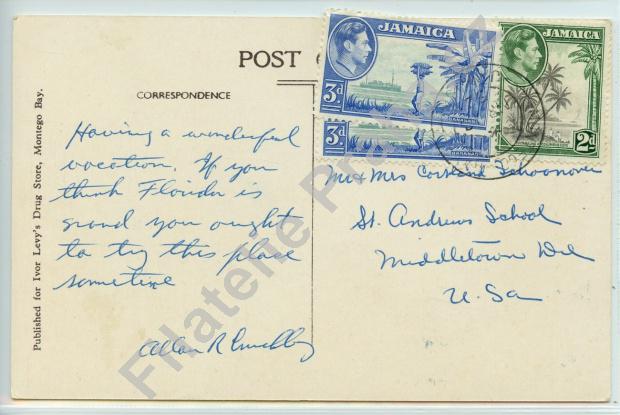 POST C
JAMAICA
3d
3d
JAMAICA
2d
CORRESPONDENCE
Having a wonderful
vacation. If you
think Florida is
grand you ought
to try this place
sometime
Allan R
Mr & Mrs Cortland Schoonover
St. Andrews School
Middletown Del
U.Sa
Published for Ivor Levy's Drug Store, Montego Bay.
Filatelie